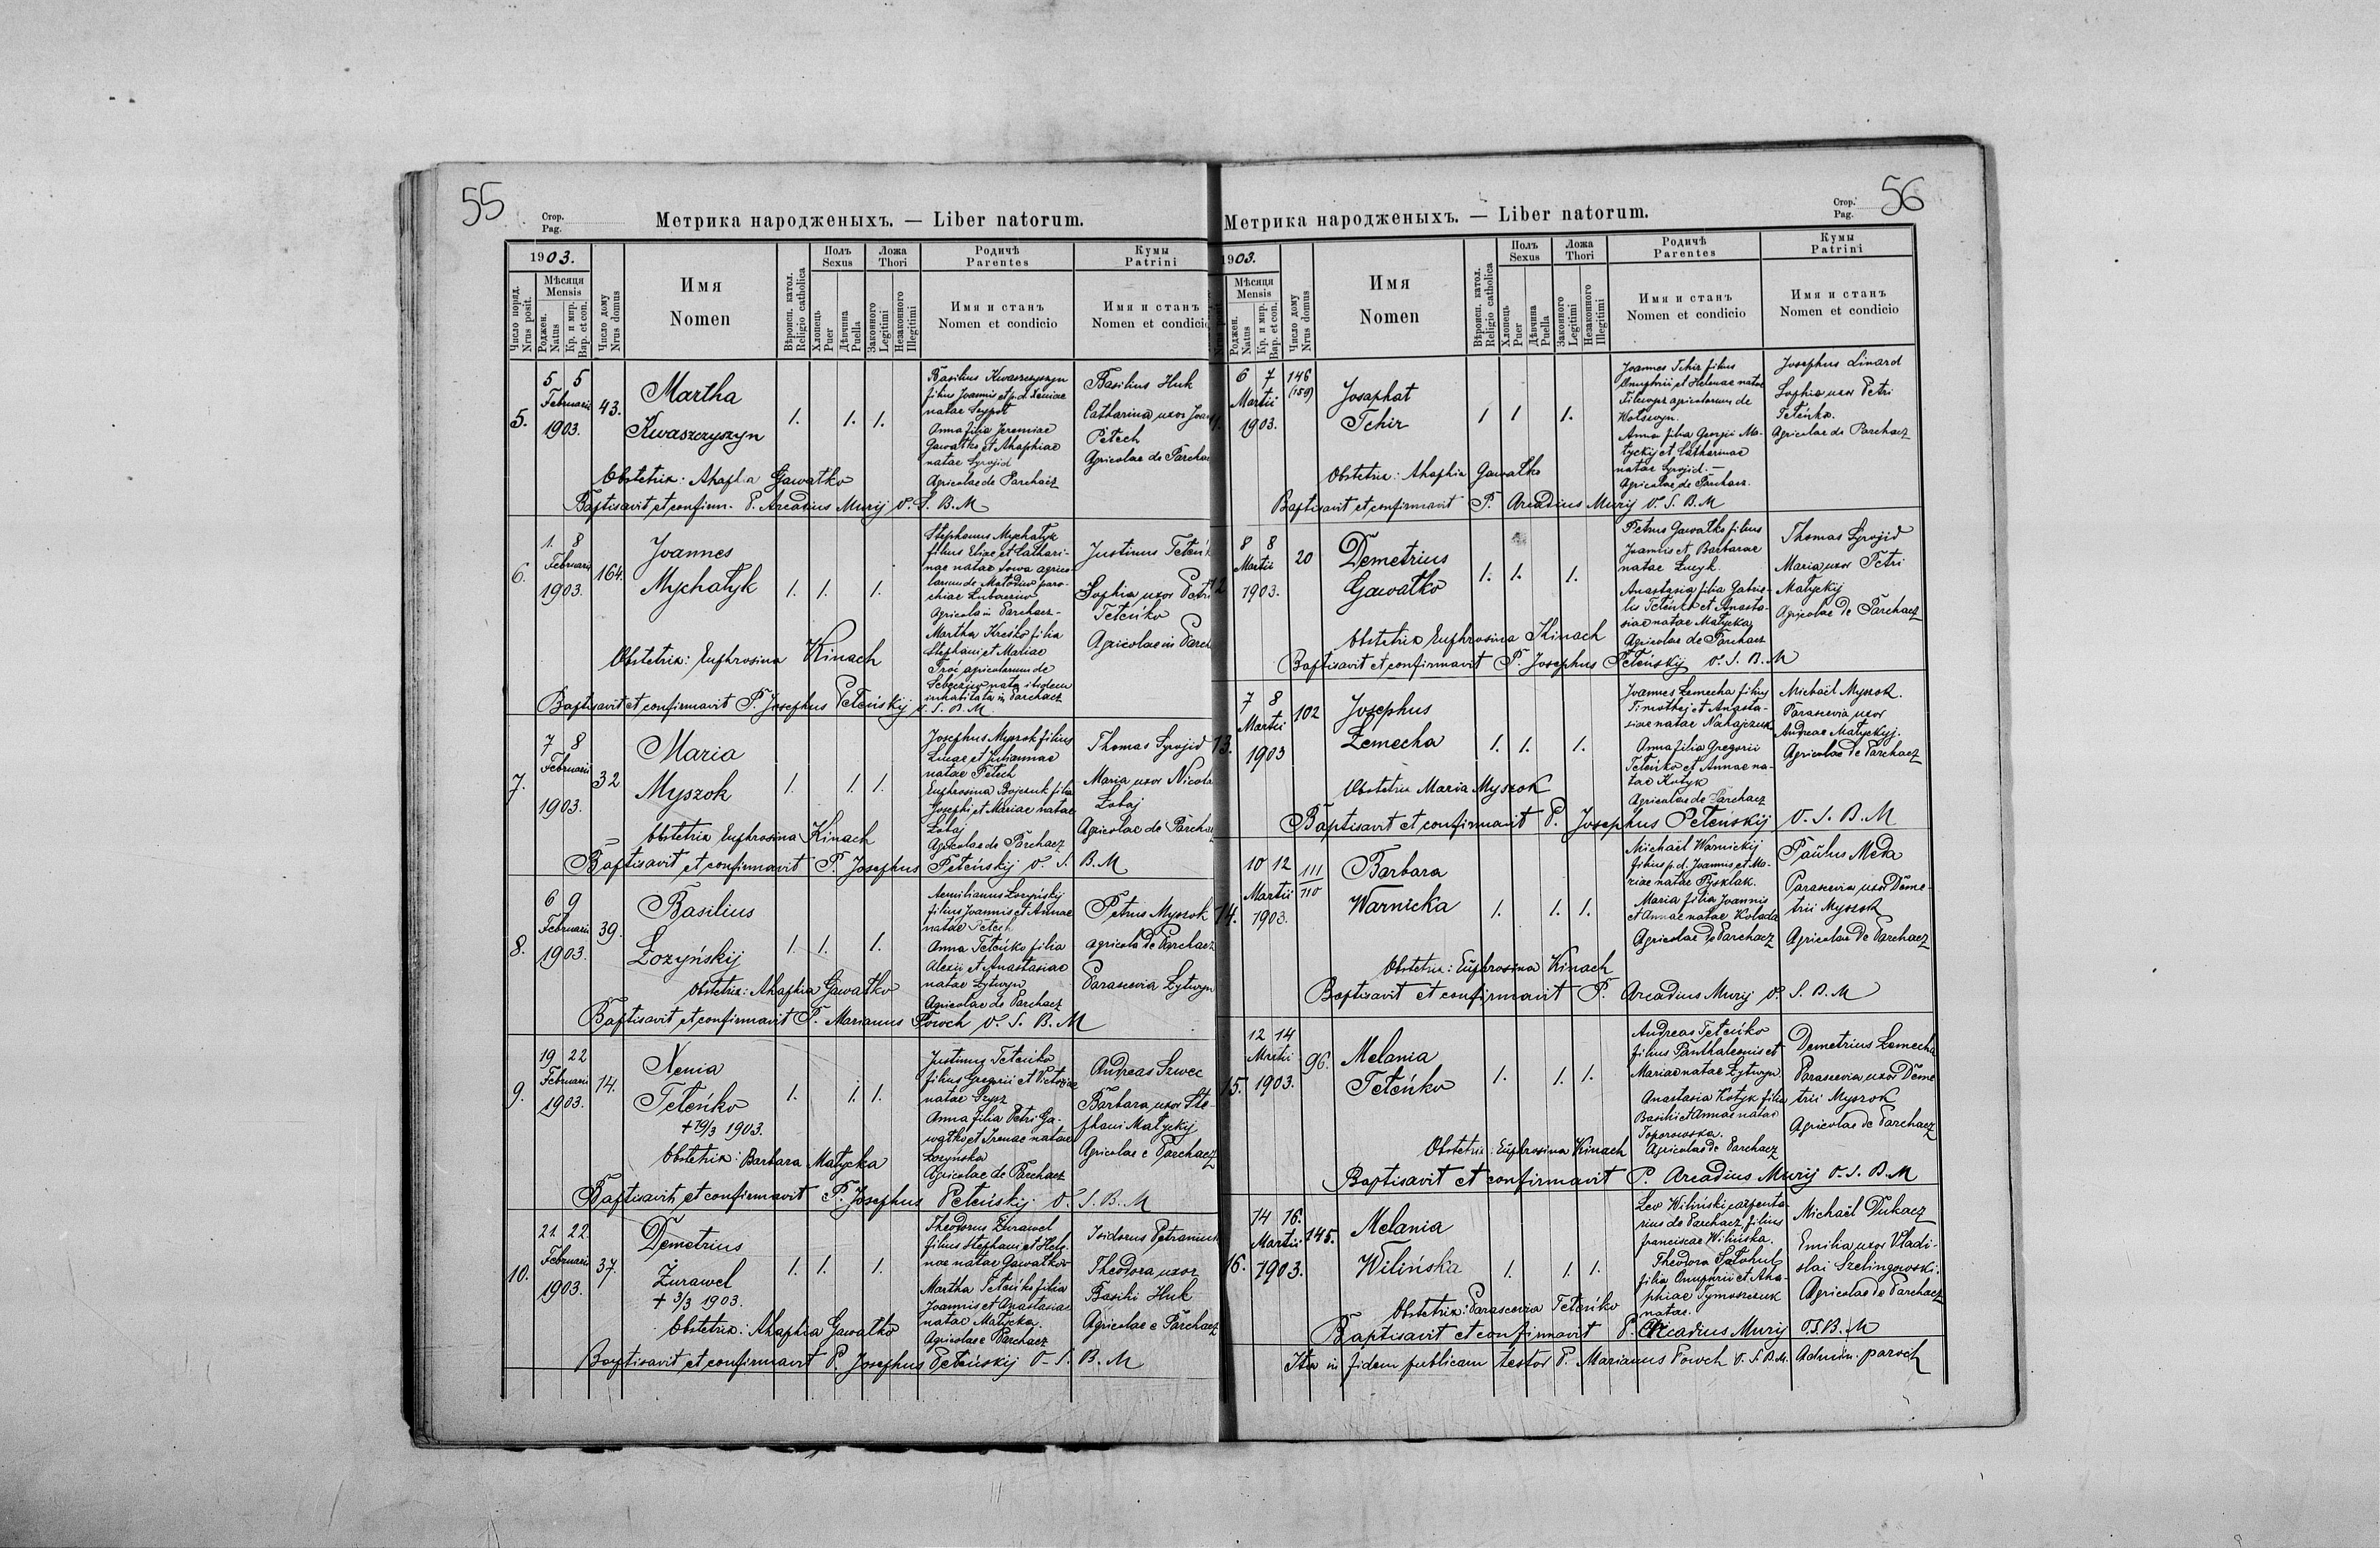 55
Стор.
Pag.
Метрика народженыхъ. — Liber natorum.
1903.
Число поряд.
Nrus posit.
Мѣсяця
Mensis
Рожден.
Natus
Кр. и мир.
Bap. et con.
Число дому
Nrus domus
Имя
Nomen
Вѣроисп. катол.
Religio catholica
Полъ
Sexus
Хлопець
Puer
Дѣвчина
Puella
Ложа
Thori
Законного
Legitimi
Незаконного
Illegitimi
Родичѣ
Parentes
Имя и станъ
Nomen et condicio
Кумы
Patrini
Имя и станъ
Nomen et condicio
5.
5 5
Februarii
1903.
43.
Martha
Kwaszczyszyn
1. 1. 1.
Basilius Kwaszczyszyn
filius Joannis et p.d. Xeniae
natae
Anna filia Jeremiae
Gawałko et Ahaphiae
natae Syrojid
Agricolae de Parchacz
Basilius Huk
Catharina uxor Joan
Petech
Agricolae de Parchac
Obstetrix: Ahaphia Gawałko
Baptisavit et confirm. P. Arcadius Muryj O. S. B. M
6.
1. 8
Februarii
1903.
164.
Joannes
Mychałyk
1. 1. 1.
Stephanus Mychałyk
filius Eliae et Cathari-
nae natae Sowa agrico-
larum de Matodiw paro-
chiae
Agricola in Parchacz-
Martha Kreśko filia
Stephani et Mariae
Troć agricolarum de
nata itidem
inhabitata in Parchacz
Justinus Teteńk
Sophia uxor Petri
Teteńko
Agricolae in Parch
Obstetrix: Euphrosina Kinach
Baptisavit et confirmavit P. Josephus Peteńskij O. S. B. M
7.
7 8
Februarii
1903.
32
Maria
Myszok
1. 1. 1.
Josephus Myszok filius
Lucae et Juliannae
natae Petech
Euphrosina Bojczuk filia
Josephi et Mariae natae
Łobaj
Agricolae de Parchacz
Thomas Syrojid
Maria uxor Nicola
Łobaj
Agricolae de Parchac
Obstetrix Euphrosina Kinach
Baptisavit et confirmavit P. Josephus Peteńskij O. S. B. M
8.
6 9
Februarii
1903.
39.
Basilius
Łozyńskij
1. 1. 1.
Aemilianus Łozyńskij
filius Joannis et Annae
natae Petech
Anna Teteńko filia
Alexii et Anastasiae
natae Łytwyn
Agricolae de Parchacz
Petrus Myszok
agricola de Parchacz
Parascevia Łytwyn
Obstetrix: Ahaphia Gawałko
Baptisavit et confirmavit P. Marianus Powch O. S. B. M
9.
19 22
Februarii
1903.
14.
Xenia
Teteńko
+ 19/3 1903.
1. 1. 1.
Justinus Teteńko
filius Gregorii et Victoriae
natae Gzysz
Anna filia Petri Ga-
wałko et Irenae natae
Łozyńska
Agricolae de Parchacz
Andreas Szwec
Barbara uxor Ste-
phani Matyckij
Agricolae e Parchacz
Obstetrix: Barbara Matycka
Baptisavit et confirmavit P. Josephus Peteńskij O. S. B. M
10.
21. 22.
Februarii
1903.
37.
Demetrius
Żurawel
+ 3/3 1903.
1. 1. 1.
Theodorus Żurawel
filius Stephani et Hele-
nae natae Gawałko
Martha Teteńko filia
Joannis et Anastasiae
natae Matycka.
Agricolae e Parchacz
Isidorus Petraniuk
Theodora uxor
Basilii Huk
Agricolae e Parchacz
Obstetrix: Ahaphia Gawałko
Baptisavit et confirmavit P. Josephus Peteńskij O. S. B. M
56
Стор.
Pag.
Метрика народженыхъ. — Liber natorum.
1903.
Мѣсяця
Mensis
Рожден.
Natus
Кр. и мир.
Bap. et con.
Число дому
Nrus domus
Имя
Nomen
Вѣроисп. катол.
Religio catholica
Полъ
Sexus
Хлопець
Puer
Дѣвчина
Puella
Ложа
Thori
Законного
Legitimi
Незаконного
Illegitimi
Родичѣ
Parentes
Имя и станъ
Nomen et condicio
Кумы
Patrini
Имя и станъ
Nomen et condicio
6 7
Martii
1903.
146
(159)
Josaphat
Tchir
1 1 1.
Joannes Tchir filius
Onuphrii et Helenae natae
agricolarum de
Wolswyn.
Anna filia Georgii Ma-
tyckij et Catharinae
natae Syrojid. —
Agricolae de Parchacz.
Josephus Linard
Sophia uxor Petri
Teteńko.
Agricolae de Parchacz
Obstetrix: Ahaphia Gawałko
Baptisavit et confirmavit P. Arcadius Muryj O. S. B. M
12
8 8
Martii
1903.
20
Demetrius
Gawałko
1. 1. 1.
Petrus Gawałko filius
Joannis et Barbarae
natae Łucyk.
Anastasia filia Gabrie-
lis Teteńko et Anasta-
siae natae Matycka
Agricolae de Parchacz
Thomas Syrojid
Maria uxor Petri
Matyckij
Agricolae de Parchacz
Obstetrix Euphrosina Kinach
Baptisavit et confirmavit P. Josephus Peteńskij O. S. B. M
13.
7 8
Martii
1903
102
Josephus
Łemecha
1. 1. 1.
Joannes Łemecha filius
Timothej et Anasta-
siae natae Nahajczuk
Anna filia Gregorii
Teteńko et Annae na-
tae Kotyk
Agricolae de Parchacz
Michaël Myszok.
Parascevia uxor
Andreae Matyckyj.
Agricolae de Parchacz
Obstetrix Maria Myszok
Baptisavit et confirmavit P. Josephus Peteńskij O. S. B. M
14.
10 12
Martii
1903.
111
110
Barbara
Warnicka
1. 1. 1.
Michaël Warnickij
filius p.d. Joannis et Ma-
riae natae Pysklak.
Maria filia Joannis
et Annae natae Kolada
Agricolae de Parchacz
Paulus Meda
Parascevia uxor Deme-
trii Myszok
Agricolae de Parchacz
Obstetrix: Euphrosina Kinach
Baptisavit et confirmavit P. Arcadius Muryj O. S. B. M
15.
12 14
Martii
1903.
96.
Melania
Teteńko
1. 1. 1.
Andreas Teteńko
filius Panthaleonis et
Mariae natae Łytwyn
Anastasia Kotyk filia
Basilii et Annae natae
Toporowska.
Agricolae de Parchacz
Demetrius Łemecha
Parascevia uxor Deme
trii Myszok
Agricolae de Parchacz
Obstetrix: Euphrosina Kinach
Baptisavit et confirmavit P. Arcadius Muryj O. S. B. M
16.
14 16.
Martii
1903.
145.
Melania
Wilińska
1. 1. 1.
Leo Wiliński carpenta-
rius de Parchacz, filius
franciscae Wilińska.
Theodora
filia Onuphrii et Aha-
phiae Tymoszczuk
natae.
Michaël Dukacz
Emilia uxor Vladi-
slai Szelingowski.
Agricolae de Parchacz
Obstetrix: Parascevia Teteńko
Baptisavit et confirmavit P. Arcadius Muryj O.S.B.M
Ita in fidem publicam testor P. Marianus Powch O. S. B. M. Admin. paroch